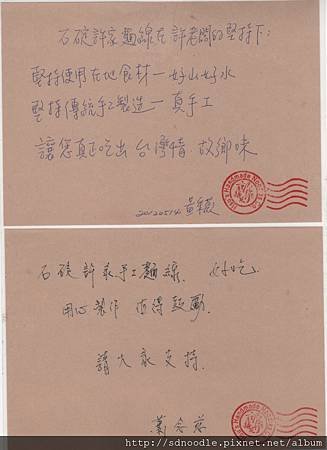 石碇許家麵線在許老闆的堅持下:
堅持使用在地食材—好山好水
堅持傳統手工製造—真手工
讓您真正吃出台灣情、故鄉味
20120514
石碇許家手工麵線. 好吃
用心製作 值得鼓勵.
請大家支持.
http://sdnoodle.pixnet.net/album